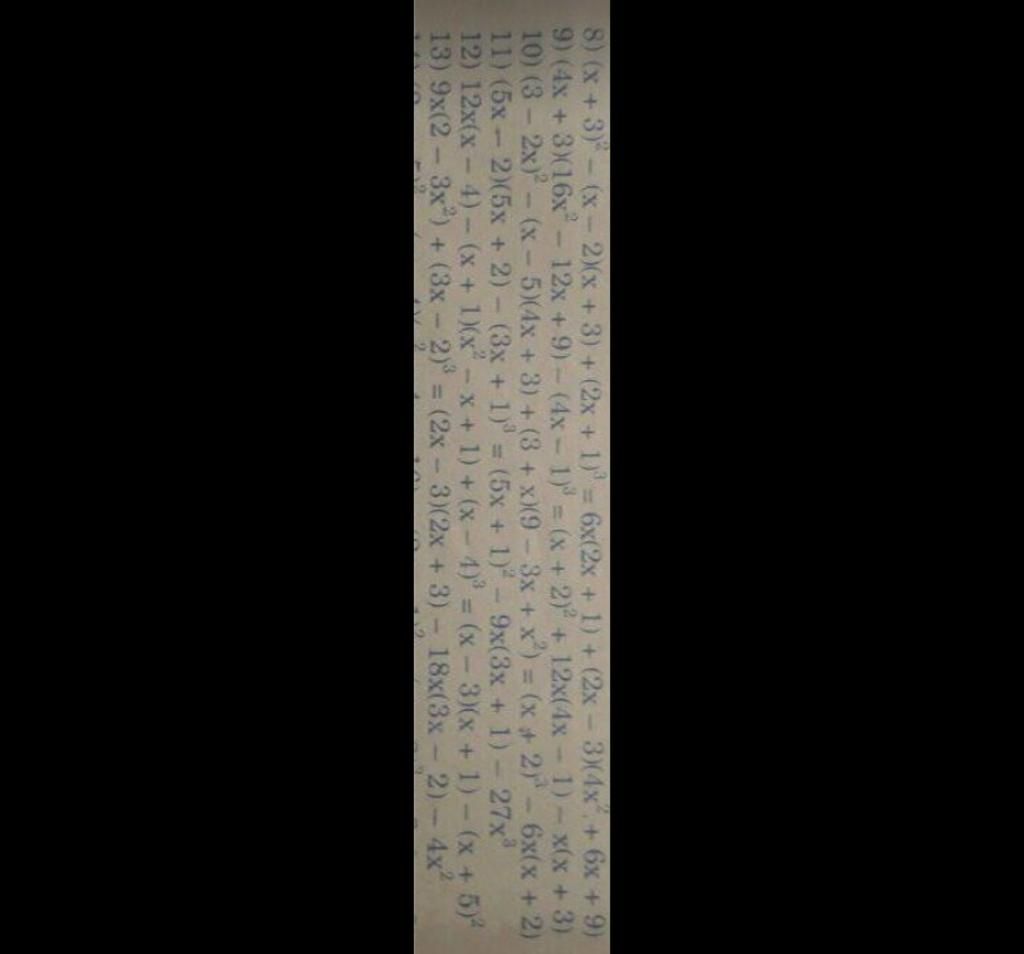 8) (x + 3)² - (x - 2)(x + 3) + (2x + 1)³ = 6x(2x + 1) + (2x - 3)(4x² + 6x + 9)
9) (4x + 3)(16x² - 12x + 9) - (4x - 1)³ = (x + 2)² + 12x(4x - 1) - x(x + 3)
10) (3 - 2x)² - (x - 5)(4x + 3) + (3 + x)(9 - 3x + x²) = (x + 2)³ - 6x(x + 2)
11) (5x - 2)(5x + 2) - (3x + 1)³ = (5x + 1)² - 9x(3x + 1) - 27x³
12) 12x(x - 4) - (x + 1)(x² - x + 1) + (x - 4)³ = (x - 3)(x + 1) - (x + 5)²
13) 9x(2 - 3x²) + (3x - 2)³ = (2x - 3)(2x + 3) - 18x(3x - 2) - 4x²